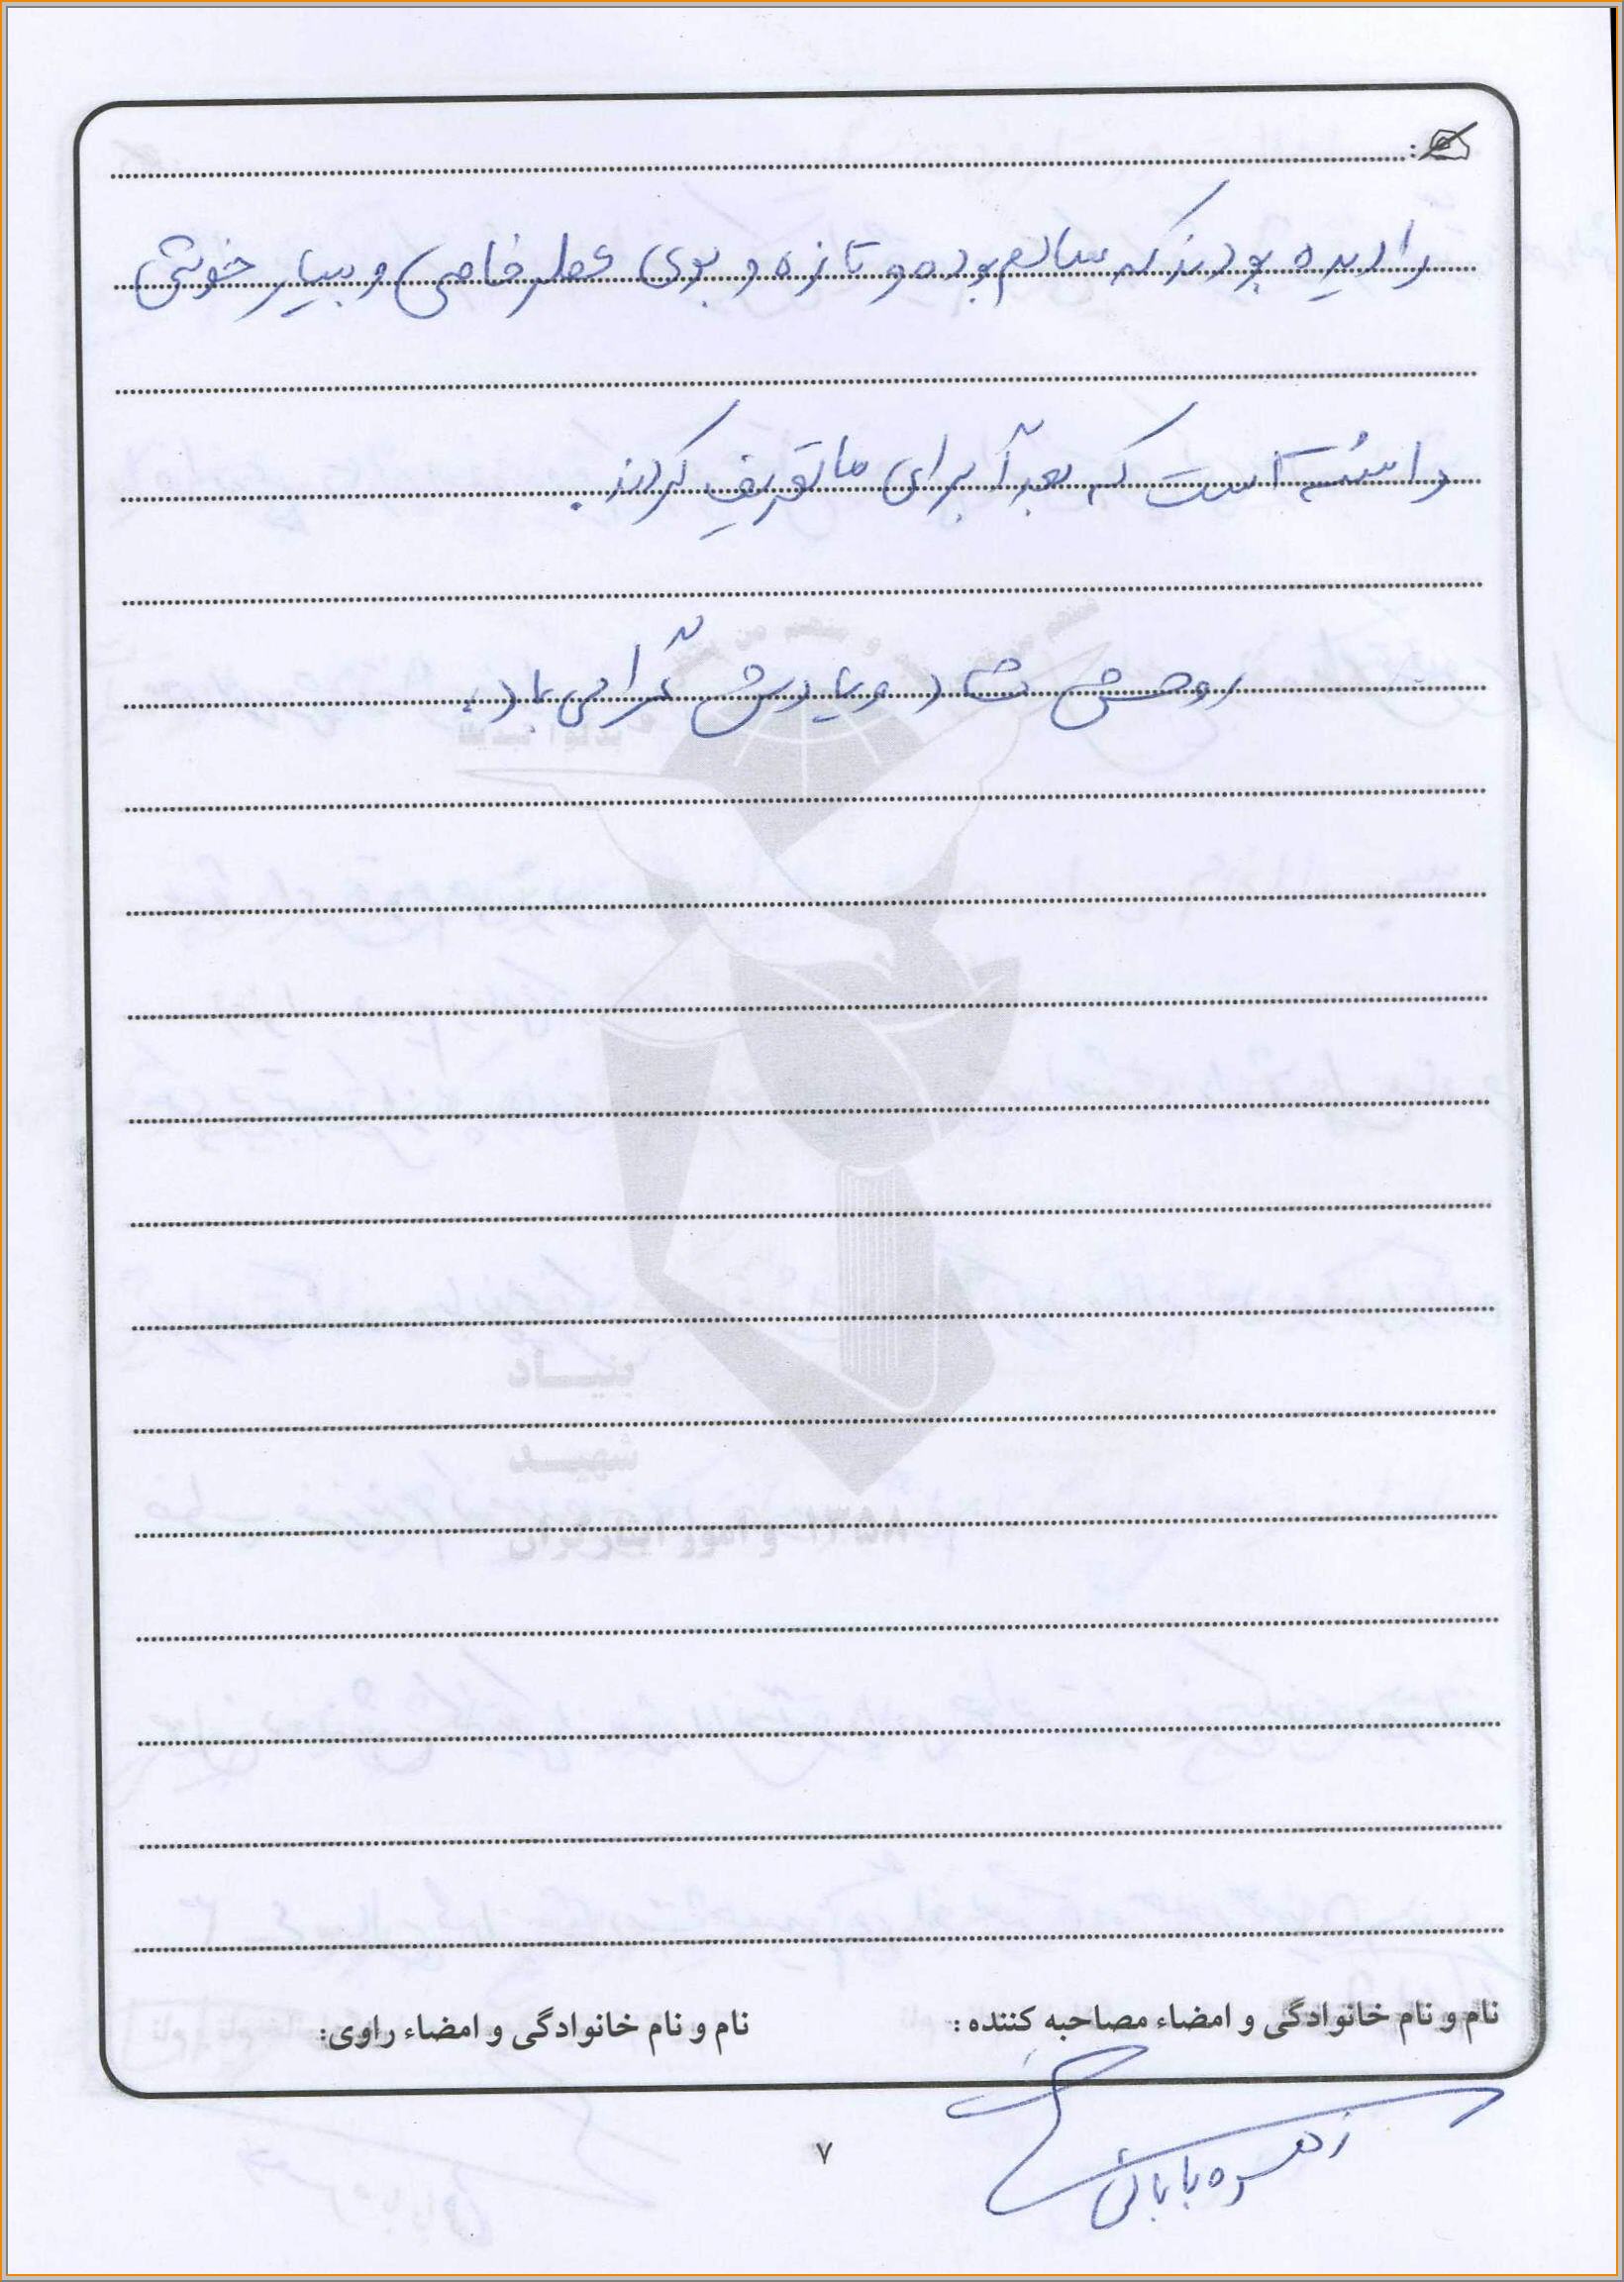 را دیده بودند که سالم بوده و تازه و بوی عطر خاصی و بسیار خوشی
داشته است که بعداً برای ما تعریف کردند.
روحش شاد و یادش گرامی باد.
بنیاد
شهید
و امور ایثارگران ۱۳۵۸
نام و نام خانوادگی و امضاء مصاحبه کننده : نام و نام خانوادگی و امضاء راوی:
زهره بابائی
۷